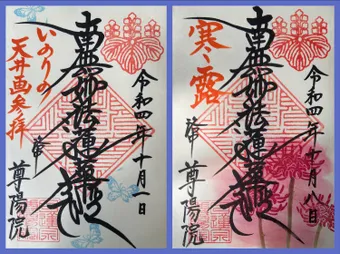 令和四年十月一日
南無妙法蓮華経
いのりの
天井画参拝
尊陽院
令和四年十月八日
南無妙法蓮華経
寒露
尊陽院